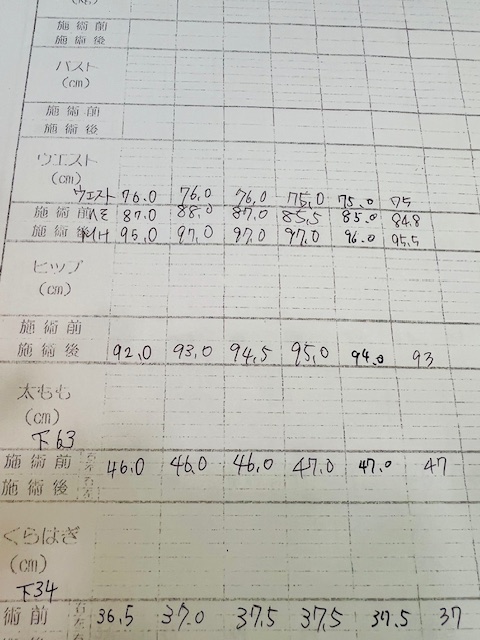 (kg)
施術前
施術後
バスト
(cm)
施術前
施術後
ウエスト
(cm)
ウエスト 76.0 76.0 76.0 75.0 75.0 75
施術前 ヘそ 87.0 88.0 87.0 85.5 85.0 84.8
施術後 下H 95.0 97.0 97.0 97.0 96.0 95.5
ヒップ
(cm)
施術前
施術後 92.0 93.0 94.5 95.0 94.0 93
太もも
(cm)
下63
施術前 右左 46.0 46.0 46.0 47.0 47.0 47
施術後 右左
くらはぎ
(cm)
下34
術前 右左 36.5 37.0 37.5 37.5 37.5 37